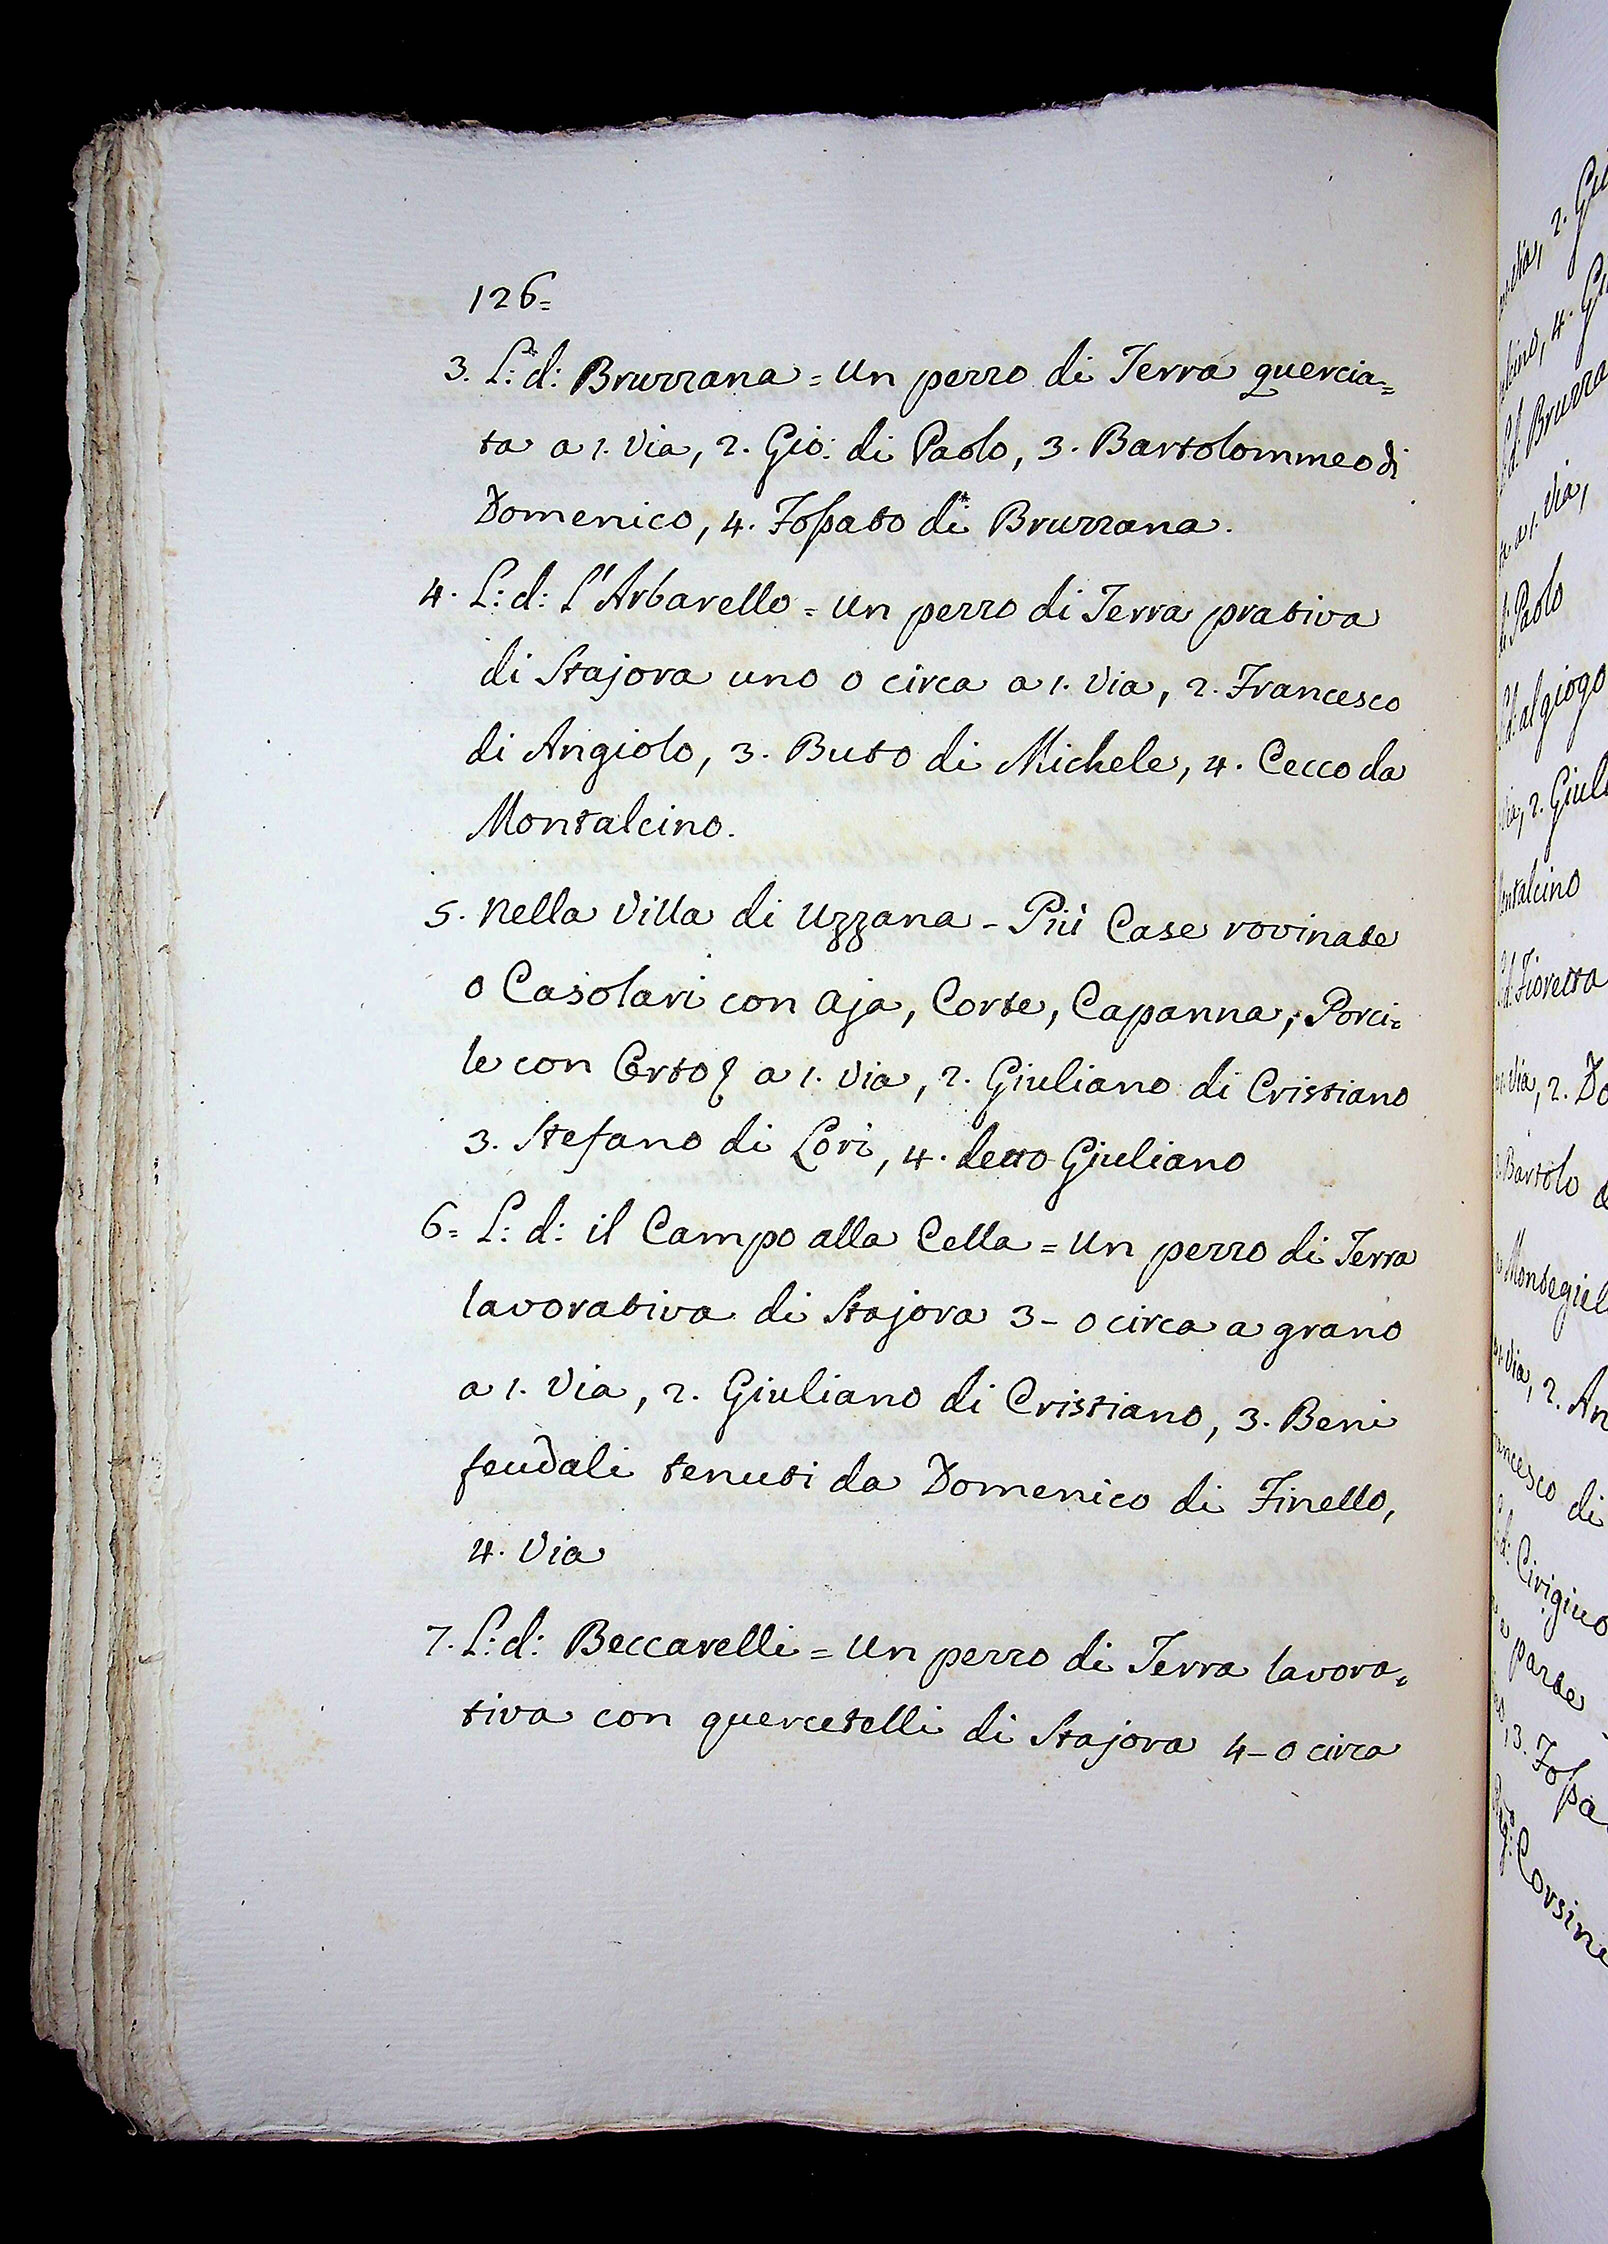 126=
3. L: d: Bruzzana = un pezzo di Terra quercia=
ta a 1. Via, 2. Gio: di Paolo, 3. Bartolommeo di
Domenico, 4. Fossato di Bruzzana.
4. L: d: L'Arbarello = un pezzo di Terra prativa
di Stajora uno o circa a 1. Via, 2. Francesco
di Angiolo, 3. Buto di Michele, 4. Cecco da
Montalcino.
5. Nella Villa di Uzzana - Più Case rovinate
o Casolari con aja, Corte, Capanna, Porci=
le con a 1. Via, 2. Giuliano di Cristiano
3. Stefano di Lori, 4. detto Giuliano
6= L: d: il Campo alla Cella = un pezzo di Terra
lavorativa di Stajora 3 - o circa a grano
a 1. Via, 2. Giuliano di Cristiano, 3. Beni
feudali tenuti da Domenico di Finello,
4. Via
7. L: d: Beccarelli = un pezzo di Terra lavora=
tiva con quercetelli di Stajora 4 - o circa
2.
4.
d: Bruzza
a 1. Via,
di Paolo
d: al giogo
2. Giul
ontalcino
d: Fioretta
Via, 2. Do
Bartolo
Montegiel
Via, 2. An
ancesco di
d: Cirigiuo
parte
3. Fossa
Corsin